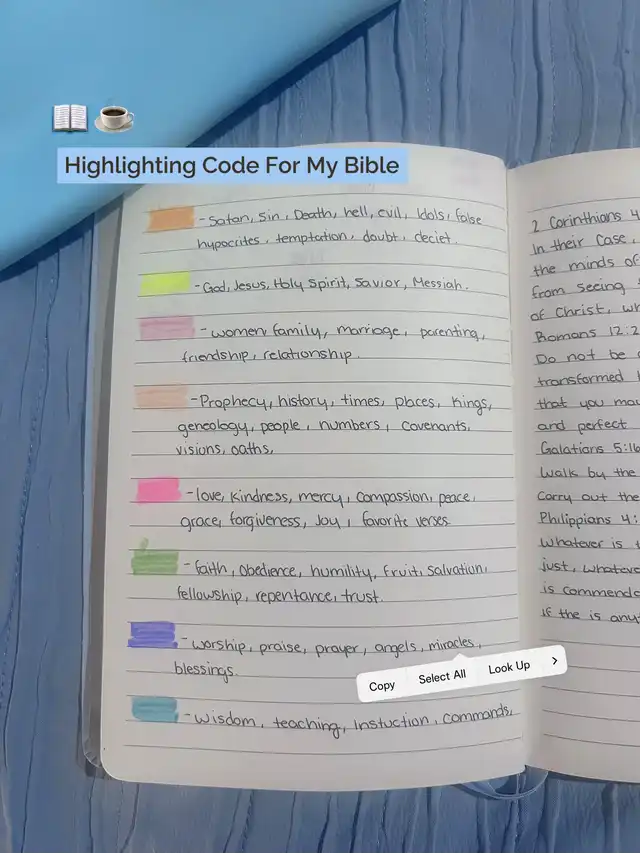 Highlighting Code For My Bible
- Satan, Sin, Death, hell, evil, Idols, false
hypocrites, temptation, doubt, deciet.
- God, Jesus, Holy Spirit, Savior, Messiah.
- women family, marriage, parenting,
friendship, relationship.
- Prophecy, history, times, places, Kings,
geneology, people, numbers, Covenants,
visions, oaths,
- love, Kindness, mercy, compassion, peace,
grace, forgiveness, Joy, favorite verses
- faith, obedience, humility, fruit, Salvation,
fellowship, repentance, trust.
- worship, praise, prayer, angels, miracles,
blessings.
Copy Select All Look Up >
- Wisdom, teaching, Instuction, commands,
2 Corinthians 4
In their Case,
the minds of
from seeing
of Christ,
Romans 12:2
Do not be
transformed
that you
and perfect
Galatians 5:16
Walk by the
Carry out the
Philippians 4:
Whatever is
just,
is
if the is